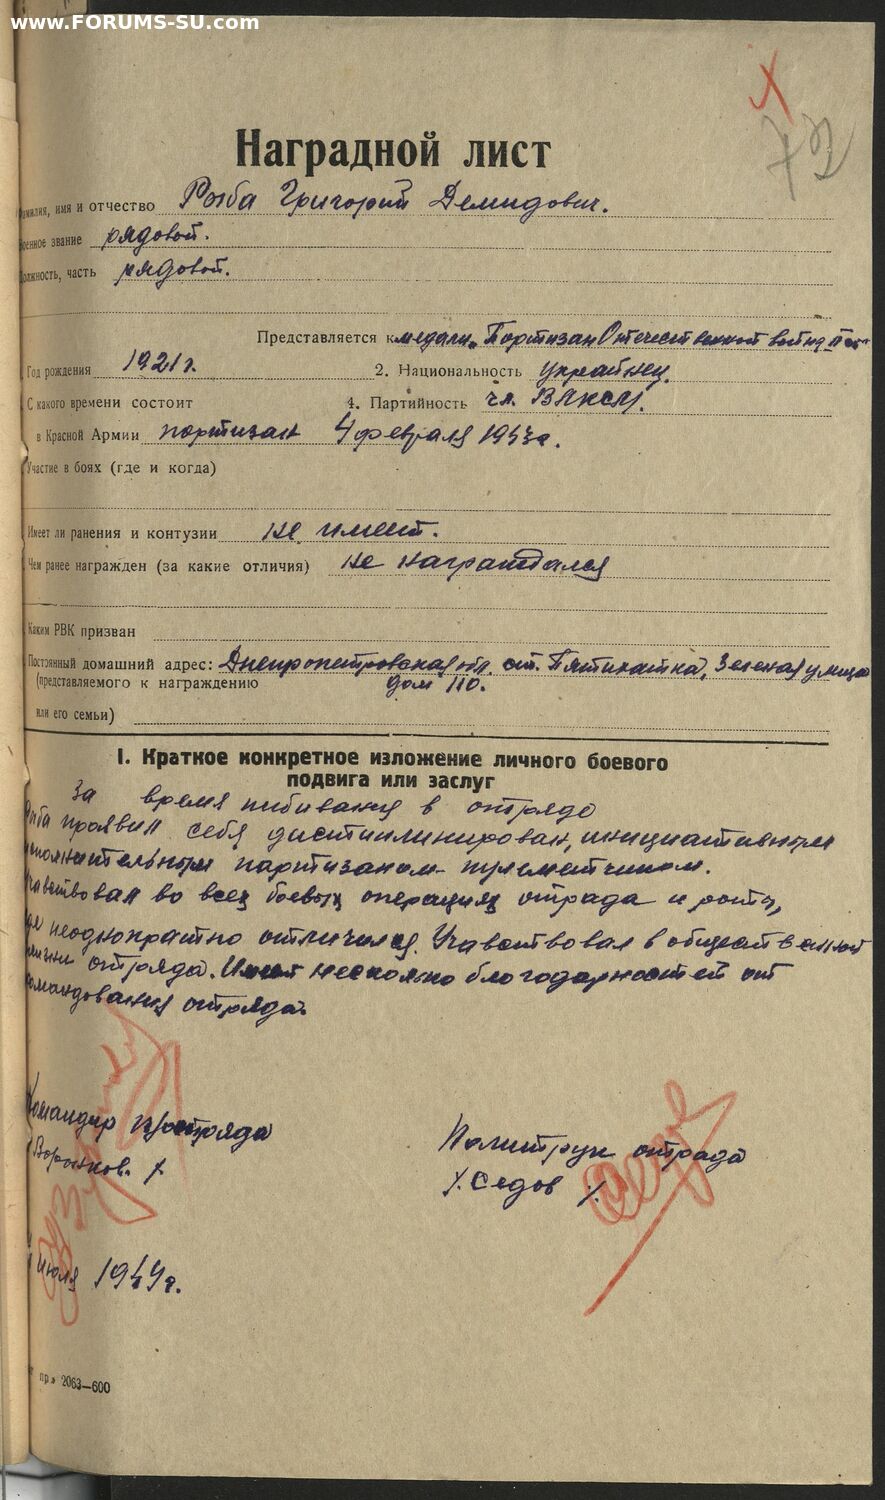 www.FORUMS-SU.com
72
Наградной лист
амилия, имя и отчество Рыба Григорий Демидович.
оенное звание рядовой.
олжность, часть рядовой.
Представляется к медали „Партизан Отечественной войны
Год рождения 1921 г. 2. Национальность украинец.
С какого времени состоит 4. Партийность чл. ВЛКСМ.
в Красной Армии партизан 4 февраля 1943 г.
Участие в боях (где и когда)
Имеет ли ранения и контузии не имеет.
Чем ранее награжден (за какие отличия) не награждался
Каким РВК призван
Постоянный домашний адрес: Днепропетровская обл. ст. Пятихатка, Зеленая улица
(представляемого к награждению дом 110.
или его семьи)
I. Краткое конкретное изложение личного боевого
подвига или заслуг
За время пибивания в отряде
ыба проявил себя дистиплинирован, инициативным
сполнительным партизаном-пулеметчиком.
чавствовал во всех боевых операциях отряда и роты,
где неоднократно отличился. Учавствовал в общественной
жизни отряда. Имел несколько благодарностей от
омандования отряда.
Командир отряда
Воронков. /
Политрук отряда
/. Седов /.
июля 1944 г.
пр» 2063—600